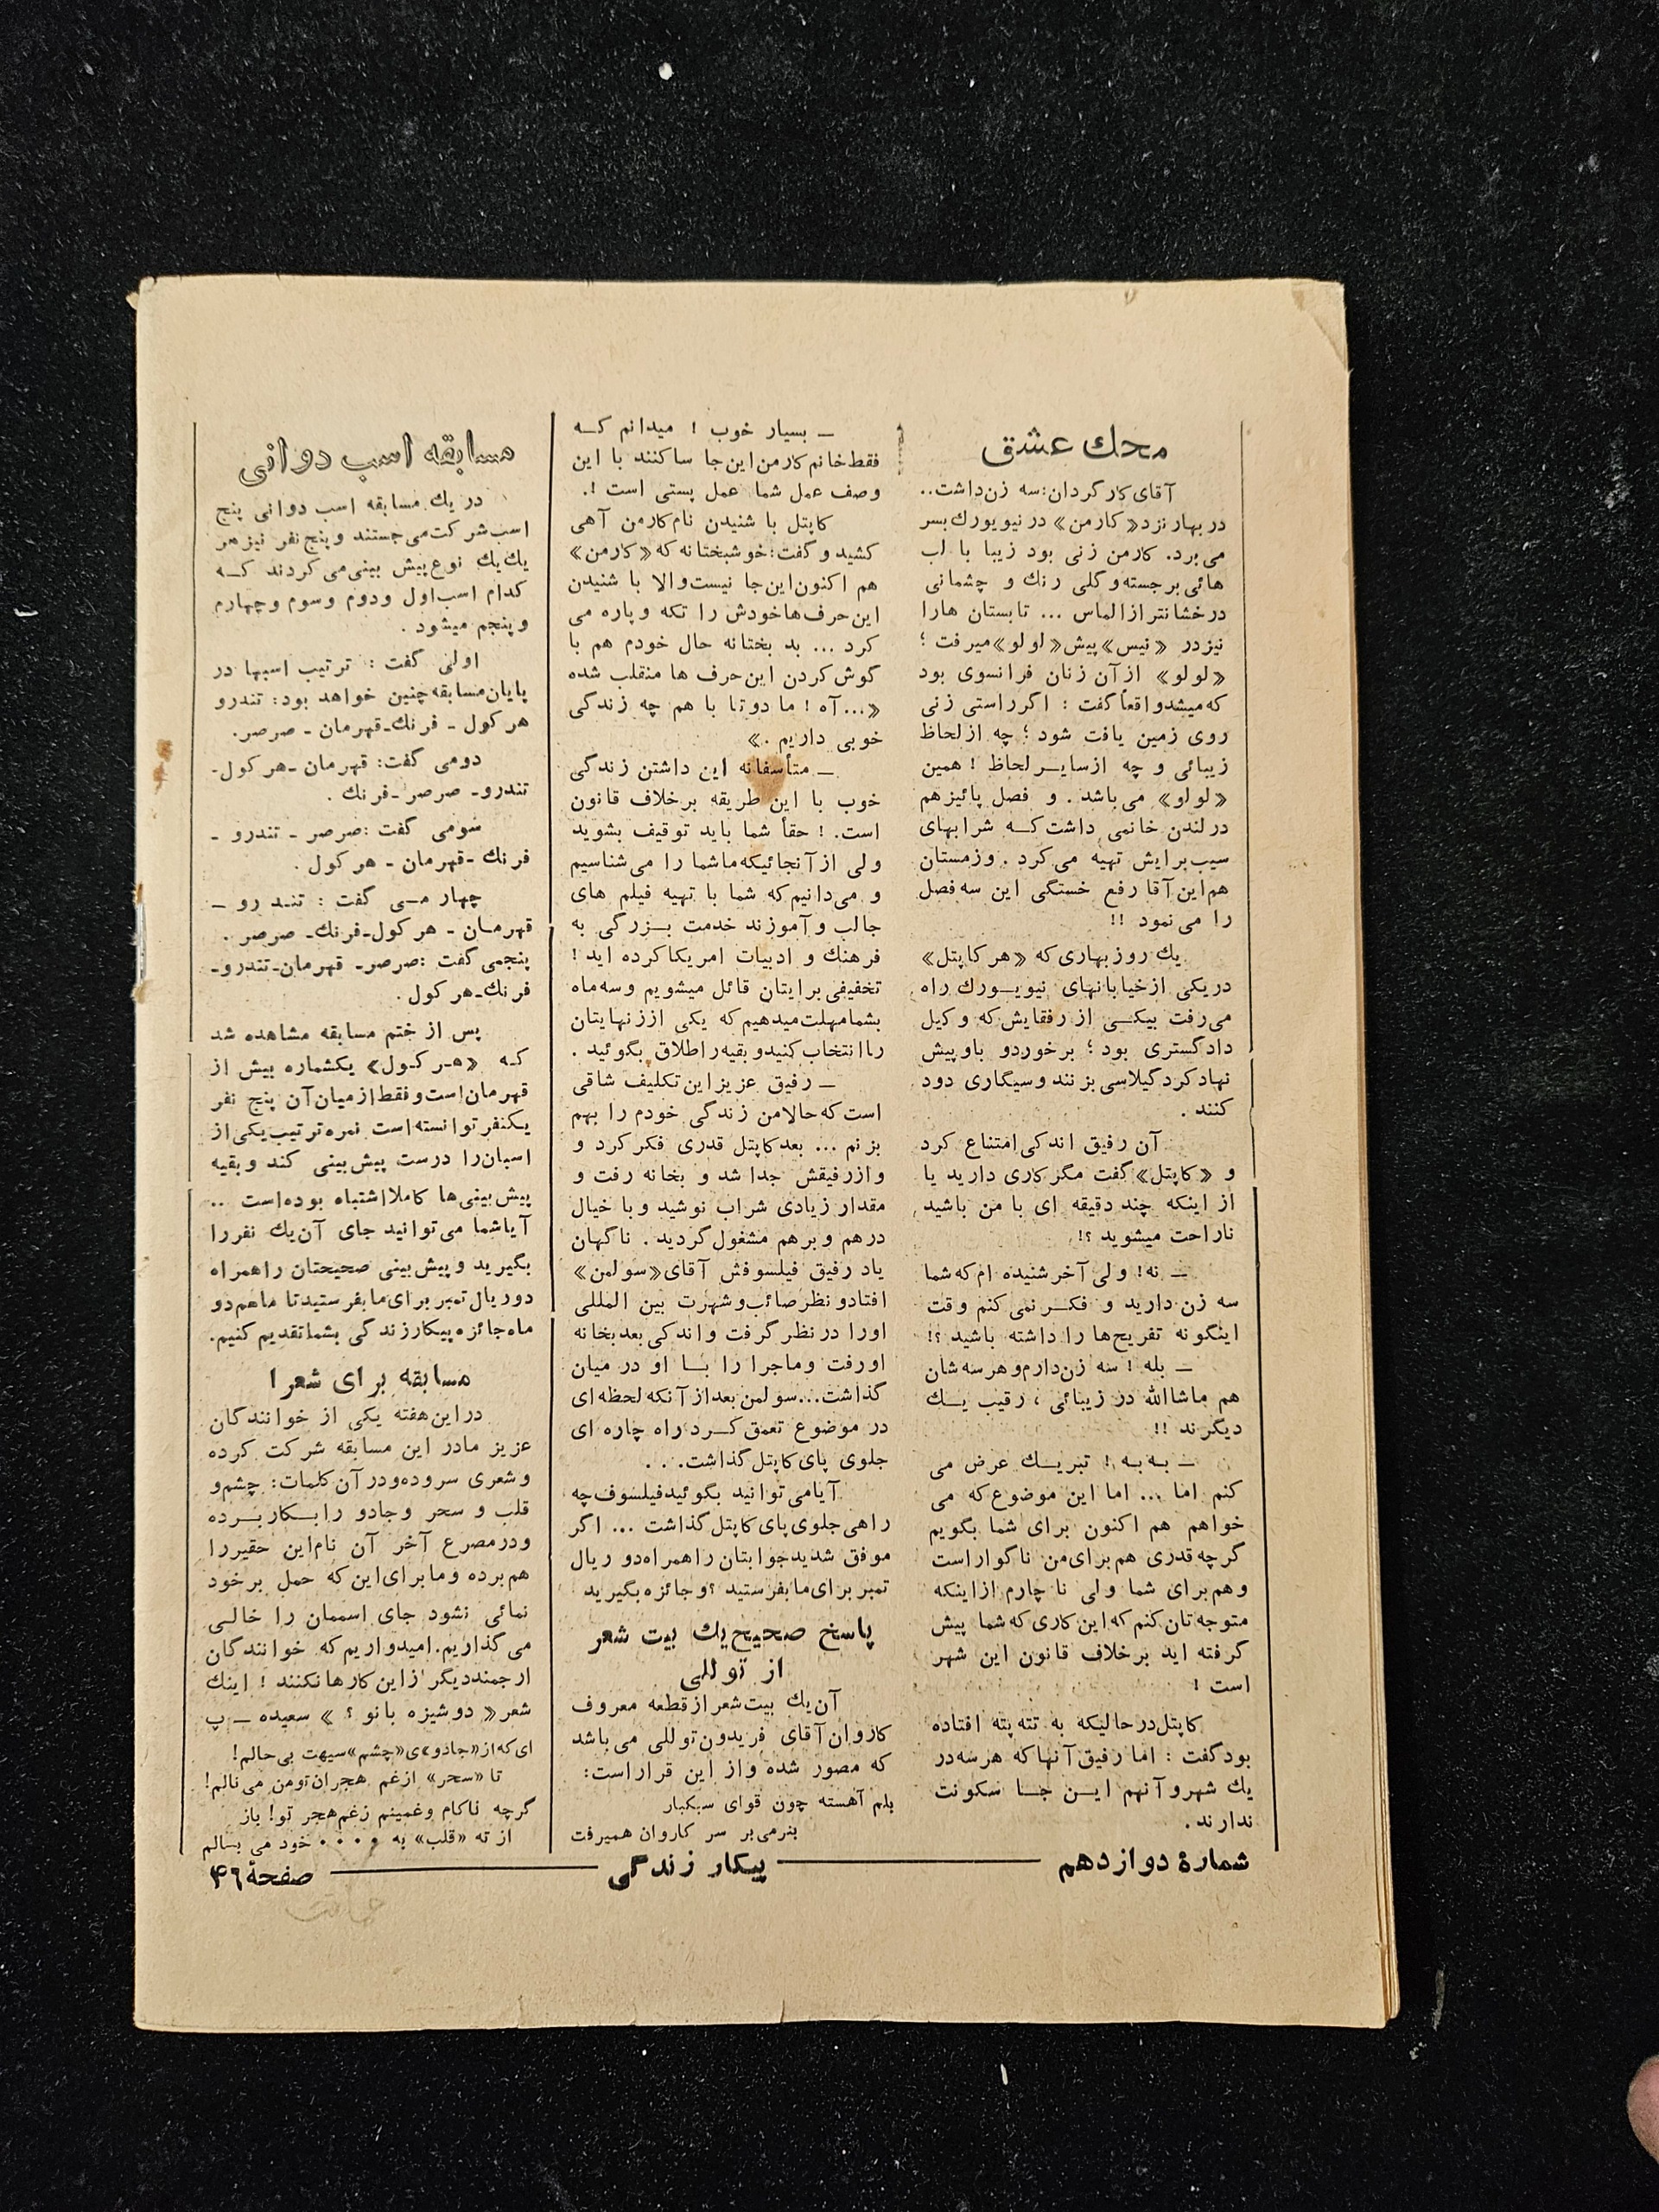 محك عشق
آقای کارگردان: سه زن داشت..
در بهار نزد «کارمن» در نیویورك بسر
می برد. کارمن زنی بود زیبا با لب
هائی برجسته و گلی رنك و چشمانی
درخشانتر از الماس ... تابستان هارا
نیز در «نیس» پیش «لولو» میرفت ؛
«لولو» از آن زنان فرانسوی بود
که میشد واقعاً گفت : اگر راستی زنی
روی زمین یافت شود ؛ چه از لحاظ
زیبائی و چه از سایر لحاظ ! همین
«لولو» می باشد . و فصل پائیز هم
در لندن خانمی داشت که شرابهای
سیب برایش تهیه می کرد . و زمستان
هم این آقا رفع خستگی این سه فصل
را می نمود !!
یك روز بهاری که «هر کاپتل»
در یکی از خیابانهای نیویورك راه
می رفت بیکی از رفقایش که وکیل
دادگستری بود ؛ برخورد و باو پیش
نهاد کرد گیلاسی بزنند و سیگاری دود
کنند .
آن رفیق اندکی امتناع کرد
و «کاپتل» گفت مگر کاری دارید یا
از اینکه چند دقیقه ای با من باشید
ناراحت میشوید ؟!
ـ نه! ولی آخر شنیده ام که شما
سه زن دارید و فکر نمی کنم وقت
اینگونه تفریح ها را داشته باشید ؟!
ـ بله ! سه زن دارم و هر سه شان
هم ماشاالله در زیبائی ، رقیب یك
دیگرند !!
ـ به به ! تبریك عرض می
کنم اما ... اما این موضوع که می
خواهم هم اکنون برای شما بگویم
گرچه قدری هم برای من ناگوار است
و هم برای شما ولی ناچارم از اینکه
متوجه تان کنم که این کاری که شما پیش
گرفته اید برخلاف قانون این شهر
است !
کاپتل در حالیکه به تته پته افتاده
بود گفت : اما رفیق آنها که هر سه در
یك شهر و آنهم این جا سکونت
ندارند .
ـ بسیار خوب ! میدانم که
فقط خانم کارمن این جا ساکنند با این
وصف عمل شما عمل پستی است !.
کاپتل با شنیدن نام کارمن آهی
کشید و گفت: خوشبختانه که «کارمن»
هم اکنون این جا نیست والا با شنیدن
این حرف ها خودش را تکه و پاره می
کرد ... بد بختانه حال خودم هم با
گوش کردن این حرف ها منقلب شده
«... آه ! ما دوتا با هم چه زندگی
خوبی داریم .»
ـ متأسفانه این داشتن زندگی
خوب با این طریقه برخلاف قانون
است. ! حقاً شما باید توقیف بشوید
ولی از آنجائیکه ما شما را می شناسیم
و می دانیم که شما با تهیه فیلم های
جالب و آموزند خدمت بزرگی به
فرهنك و ادبیات امریکا کرده اید !
تخفیفی برایتان قائل میشویم و سه ماه
بشما مهلت میدهیم که یکی از زنهایتان
را انتخاب کنید و بقیه را طلاق بگوئید .
ـ رفیق عزیز این تکلیف شاقی
است که حالا من زندگی خودم را بهم
بزنم ... بعد کاپتل قدری فکر کرد و
و از رفیقش جدا شد و بخانه رفت و
مقدار زیادی شراب نوشید و با خیال
درهم و برهم مشغول گردید . ناگهان
یاد رفیق فیلسوفش آقای «سولمن»
افتاد و نظر صائب و شهرت بین المللی
اورا در نظر گرفت و اندکی بعد بخانه
او رفت و ماجرا را با او در میان
گذاشت... سولمن بعد از آنکه لحظه ای
در موضوع تعمق کرد راه چاره ای
جلوی پای کاپتل گذاشت. . .
آیا می توانید بگوئید فیلسوف چه
راهی جلوی پای کاپتل گذاشت ... اگر
موفق شدید جوابتان را همراه دو ریال
تمبر برای ما بفرستید ؟ و جائزه بگیرید
پاسخ صحیح یك بیت شعر
از توللی
آن یك بیت شعر از قطعه معروف
کاروان آقای فریدون توللی می باشد
که مصور شده و از این قرار است:
بلم آهسته چون قوای سبکبار
بنرمی بر سر کاروان همیرفت
مسابقه اسب دوانی
در یك مسابقه اسب دوانی پنج
اسب شرکت می جستند و پنج نفر نیز هر
یك یك نوع پیش بینی می کردند که
کدام اسب اول و دوم و سوم و چهارم
و پنجم میشود .
اولی گفت : ترتیب اسبها در
پایان مسابقه چنین خواهد بود: تندرو
هرکول ـ فرنك ـ قهرمان ـ صرصر.
دومی گفت: قهرمان ـ هرکول ـ
تندرو ـ صرصر ـ فرنك .
سومی گفت :صرصر ـ تندرو ـ
فرنك ـ قهرمان ـ هرکول .
چهارمی گفت : تندرو ـ
قهرمان ـ هرکول ـ فرنك ـ صرصر .
پنجمی گفت :صرصر ـ قهرمان ـ تندرو ـ
فرنك ـ هرکول .
پس از ختم مسابقه مشاهده شد
که «هرکول» یکشماره بیش از
قهرمان است و فقط از میان آن پنج نفر
یکنفر توانسته است نمره ترتیب یکی از
اسبان را درست پیش بینی کند و بقیه
پیش بینی ها کاملا اشتباه بوده است ..
آیا شما می توانید جای آن یك نفر را
بگیرید و پیش بینی صحیحتان را همراه
دو ریال تمبر برای ما بفرستید تا ما هم دو
ماه جائزه پیکار زندگی بشما تقدیم کنیم.
مسابقه برای شعرا
در این هفته یکی از خوانندگان
عزیز ما در این مسابقه شرکت کرده
و شعری سروده و در آن کلمات: چشم و
قلب و سحر و جادو را بکار برده
و در مصرع آخر آن نام این حقیر را
هم برده و ما برای این که حمل بر خود
نمائی نشود جای اسممان را خالی
می گذاریم. امیدواریم که خوانندگان
ارجمند دیگر از این کارها نکنند ! اینك
شعر « دوشیزه بانو ؟ » سعیده ـ پ
ای که از «جادو»ی «چشم» سیهت بی حالم!
تا «سحر» از غم هجران تو من می نالم!
گرچه ناکام و غمینم زغم هجر تو! باز
از ته «قلب» به . . . . خود می بالم
شمارهٔ دوازدهم
پیکار زندگی
صفحهٔ ۴٦